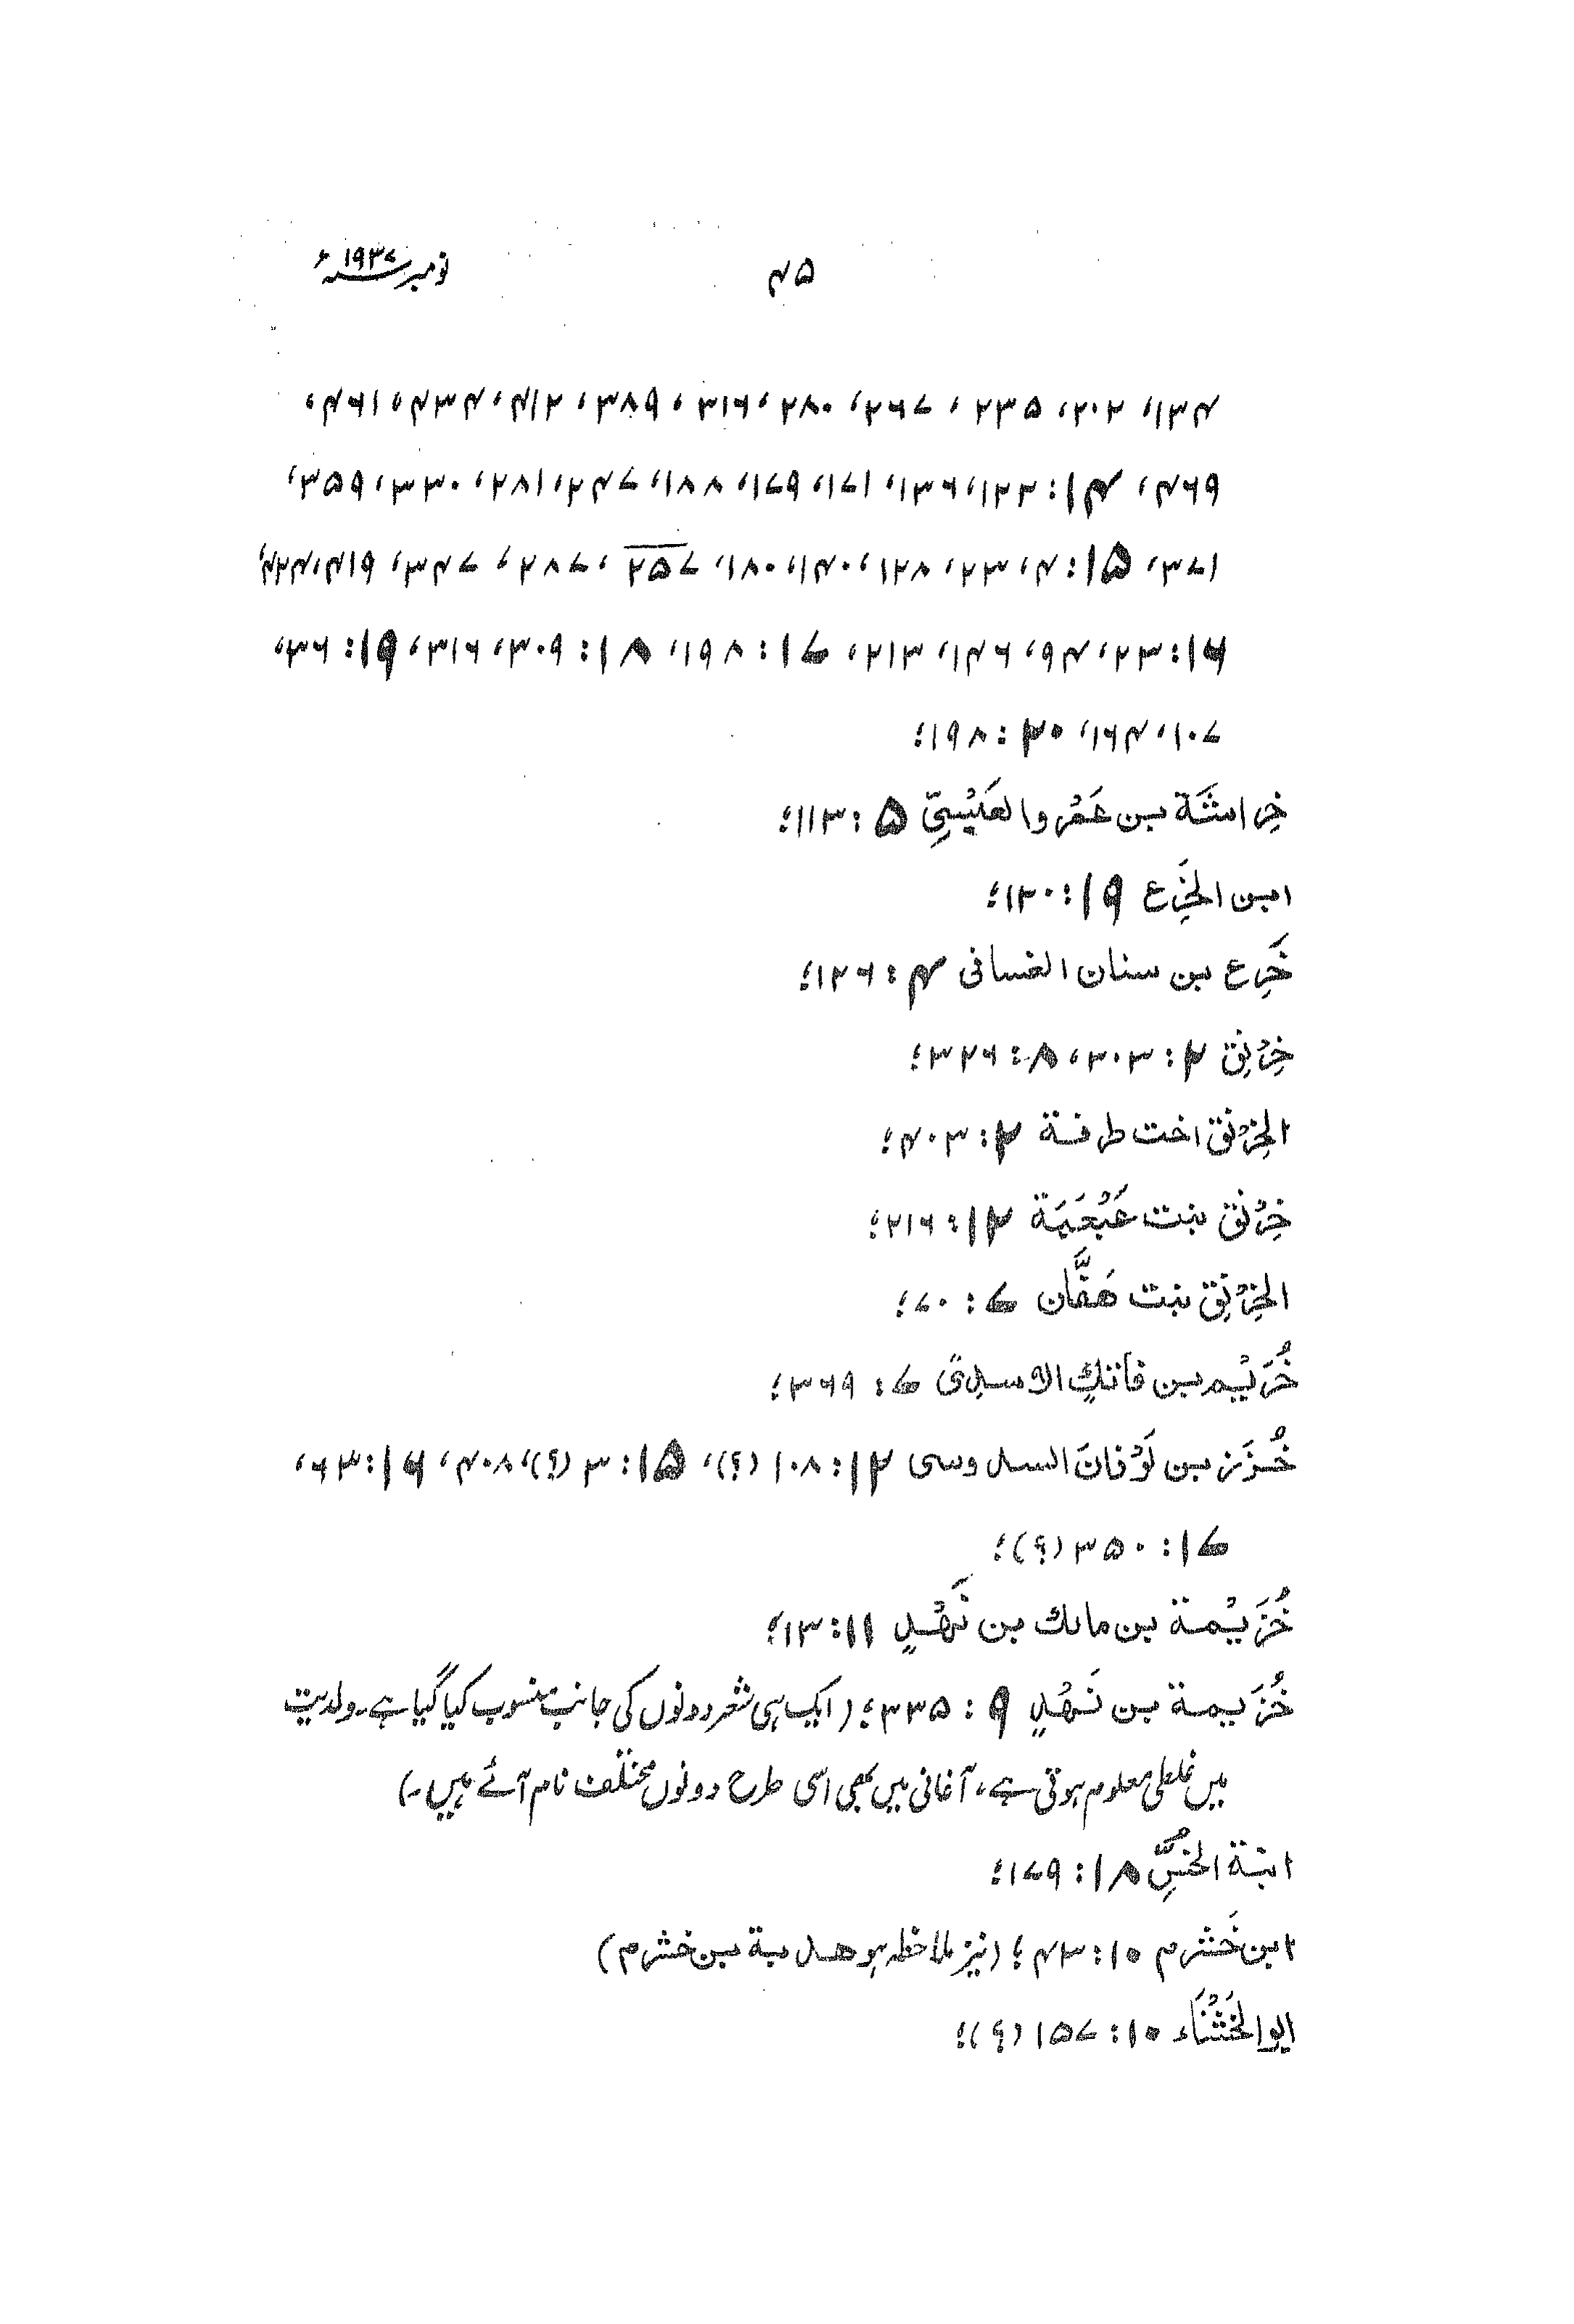 نومبر ۱۹۳۷ء
۴۵
۱۳۴، ۲۰۲، ۲۳۵، ۲۶۷، ۲۸۰، ۳۱۶، ۳۸۹، ۴۱۲، ۴۳۴، ۴۶۱،
۴۶۹، ۱۴: ۱۲۲، ۱۳۶، ۱۷۱، ۱۷۹، ۱۸۸، ۲۴۷، ۲۸۱، ۳۳۰، ۳۵۹،
۳۷۱، ۱۵: ۴، ۲۳، ۱۲۸، ۱۴۰، ۱۸۰، ۲۵۷، ۲۸۷، ۳۴۷، ۴۱۹، ۴۲۴،
۱۶: ۲۳، ۴۹، ۱۴۶، ۲۱۳، ۱۷: ۱۹۸، ۱۸: ۳۰۹، ۳۱۶، ۱۹: ۳۶،
۱۰۷، ۱۶۴، ۲۰: ۱۹۸؛
خِراشَة بن عَمْرو العَبْسِيّ ۵: ۱۱۳؛
ابن الخَرِع ۱۹: ۱۲۰؛
خَرِع بن سنان الغسانی ۴: ۱۲۶؛
خِرْنِق ۲: ۳۰۳، ۸: ۳۲۶؛
الخِرْنِق اخت طرفة ۲: ۴۰۳؛
خِرْنِق بنت عَبْعَبَة ۱۲: ۲۱۶؛
الخِرْنِق بنت هَفَّان ۷: ۷۰؛
خُرَيْم بن فَاتِكٍ الاسدِىّ ۷: ۳۶۹؛
خُزَز بن لَوْذانَ السدوسی ۱۲: ۱۰۸ (؟)، ۱۵: ۳ (؟)، ۴۰۸، ۱۶: ۶۳،
۱۷: ۳۵۰ (؟)؛
خُزَيْمة بن مالك بن نَهْدٍ ۱۱: ۱۳؛
خُزَيمة بن نَهْدٍ ۹: ۳۳۵؛ (ایک ہی شعر دونوں کی جانب منسوب کیا گیا ہے۔ ولدیت
میں غلطی معلوم ہوتی ہے، آغانی میں بھی اسی طرح دونوں مختلف نام آئے ہیں۔)
ابنة الخُسِّ ۱۸: ۱۷۹؛
ابن خَشرم ۱۰: ۴۳؛ (نیز ملاحظہ ہو هدبة بن خشرم)
ابو الخَثْنَاء ۱۰: ۱۵۷ (؟)؛